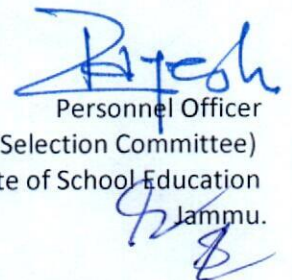 Rajesh
Personnel Officer
Selection Committee)
te of School Education
Jammu.